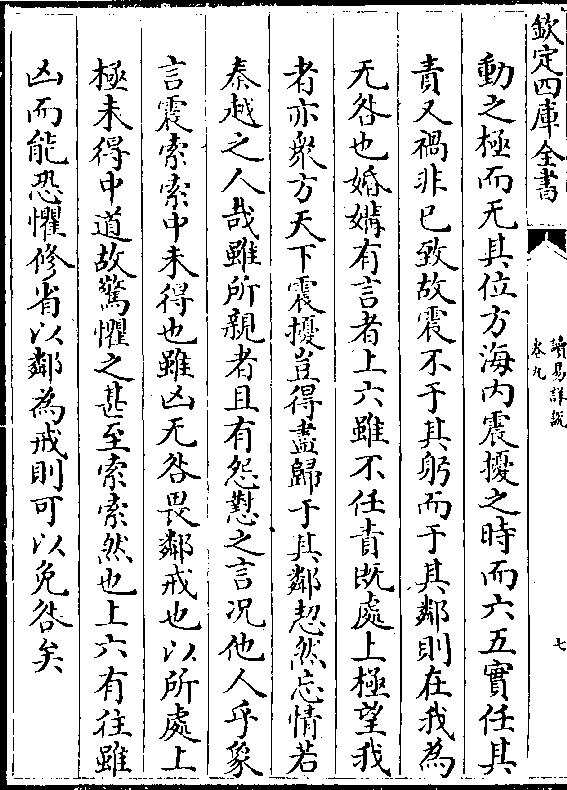 欽定四庫全書
讀易詳說
卷九
七
動之極而无其位方海内震擾之時而六五實任其
責又禍非已致故震不于其躬而于其鄰則在我為
无咎也婚媾有言者上六雖不任責既處上極望我
者亦衆方天下震擾豈得盡歸于其鄰恝然忘情若
秦越之人哉雖所親者且有怨懟之言况他人乎象
言震索索中未得也雖凶无咎畏鄰戒也以所處上
極未得中道故驚懼之甚至索索然也上六有往雖
凶而能恐懼修省以鄰為戒則可以免咎矣